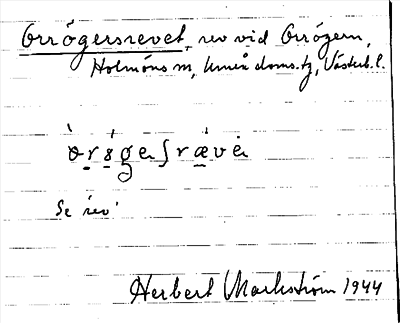 Orrögersrevet, rev vid Orrögern,
Holmöns sn, Umeå doms.tg, Västerb. l.
Se rev.
Herbert Markström 1944